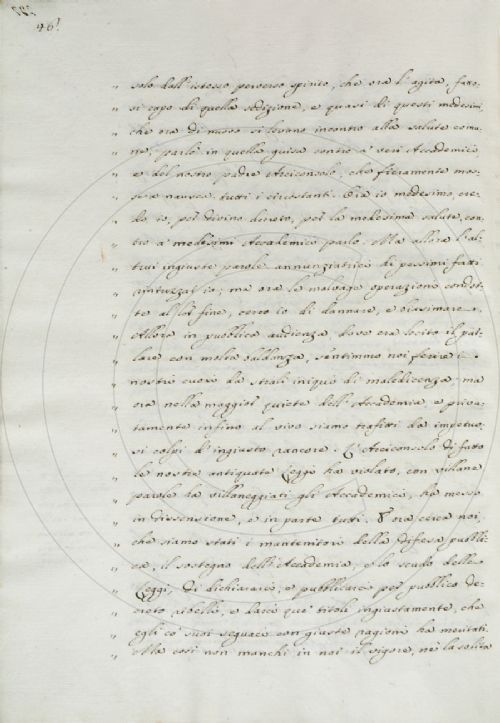 46!
„ solo dall'istesso perverso spirito, che ora l'agita, fatto-
„ si capo di quella sedizione, e quasi di questi medesimi
„ che ora di nuovo si levano incontro alla salute comu-
„ ne, parlò in quella guisa contro a' veri Accademici,
„ e del nostro padre Arciconsolo, che fieramente mos-
„ se a nausea tutti i circostanti. Ora io medesimo, cre-
„ do io, per divino volere, per la medesima salute, con-
„ tro a' medesimi Accademici parlo. Ma allora l'al-
„ trui ingiuste parole annunziatrici di pessimi fatti
„ rintuzzai io; ma ora le malvage operazioni condot-
„ te al lor fine, cerco io di dannare, e biasimare.
„ Allora in pubblica audienza dove era lecito il par-
„ lare con molta baldanza, sentimmo noi ferire i
„ nostri cuori da strali iniqui di maledicenza; ma
„ ora nella maggior quiete dell'Accademia, e priva-
„ tamente infino al vivo siamo trafitti da impetuo-
„ si colpi d'ingiusto rancore. L'Arciconsolo di fatto
„ le nostre antiquate Leggi ha violato, con villane
„ parole ha villaneggiati gli Accademici, ha messo
„ in dissensione, e in parte tutti. E ora cerca noi,
„ che siamo stati i mantenitori della difesa pubbli-
„ ca, il sostegno dell'Accademia, e lo scudo delle
„ Leggi, di dichiararci, e pubblicarci per pubblico de-
„ creto ribelli, e darci que' titoli ingiustamente, che
„ egli co' suoi seguaci con giuste ragioni ha meritati.
„ Ma così non manchi in noi il vigore, nè la solita